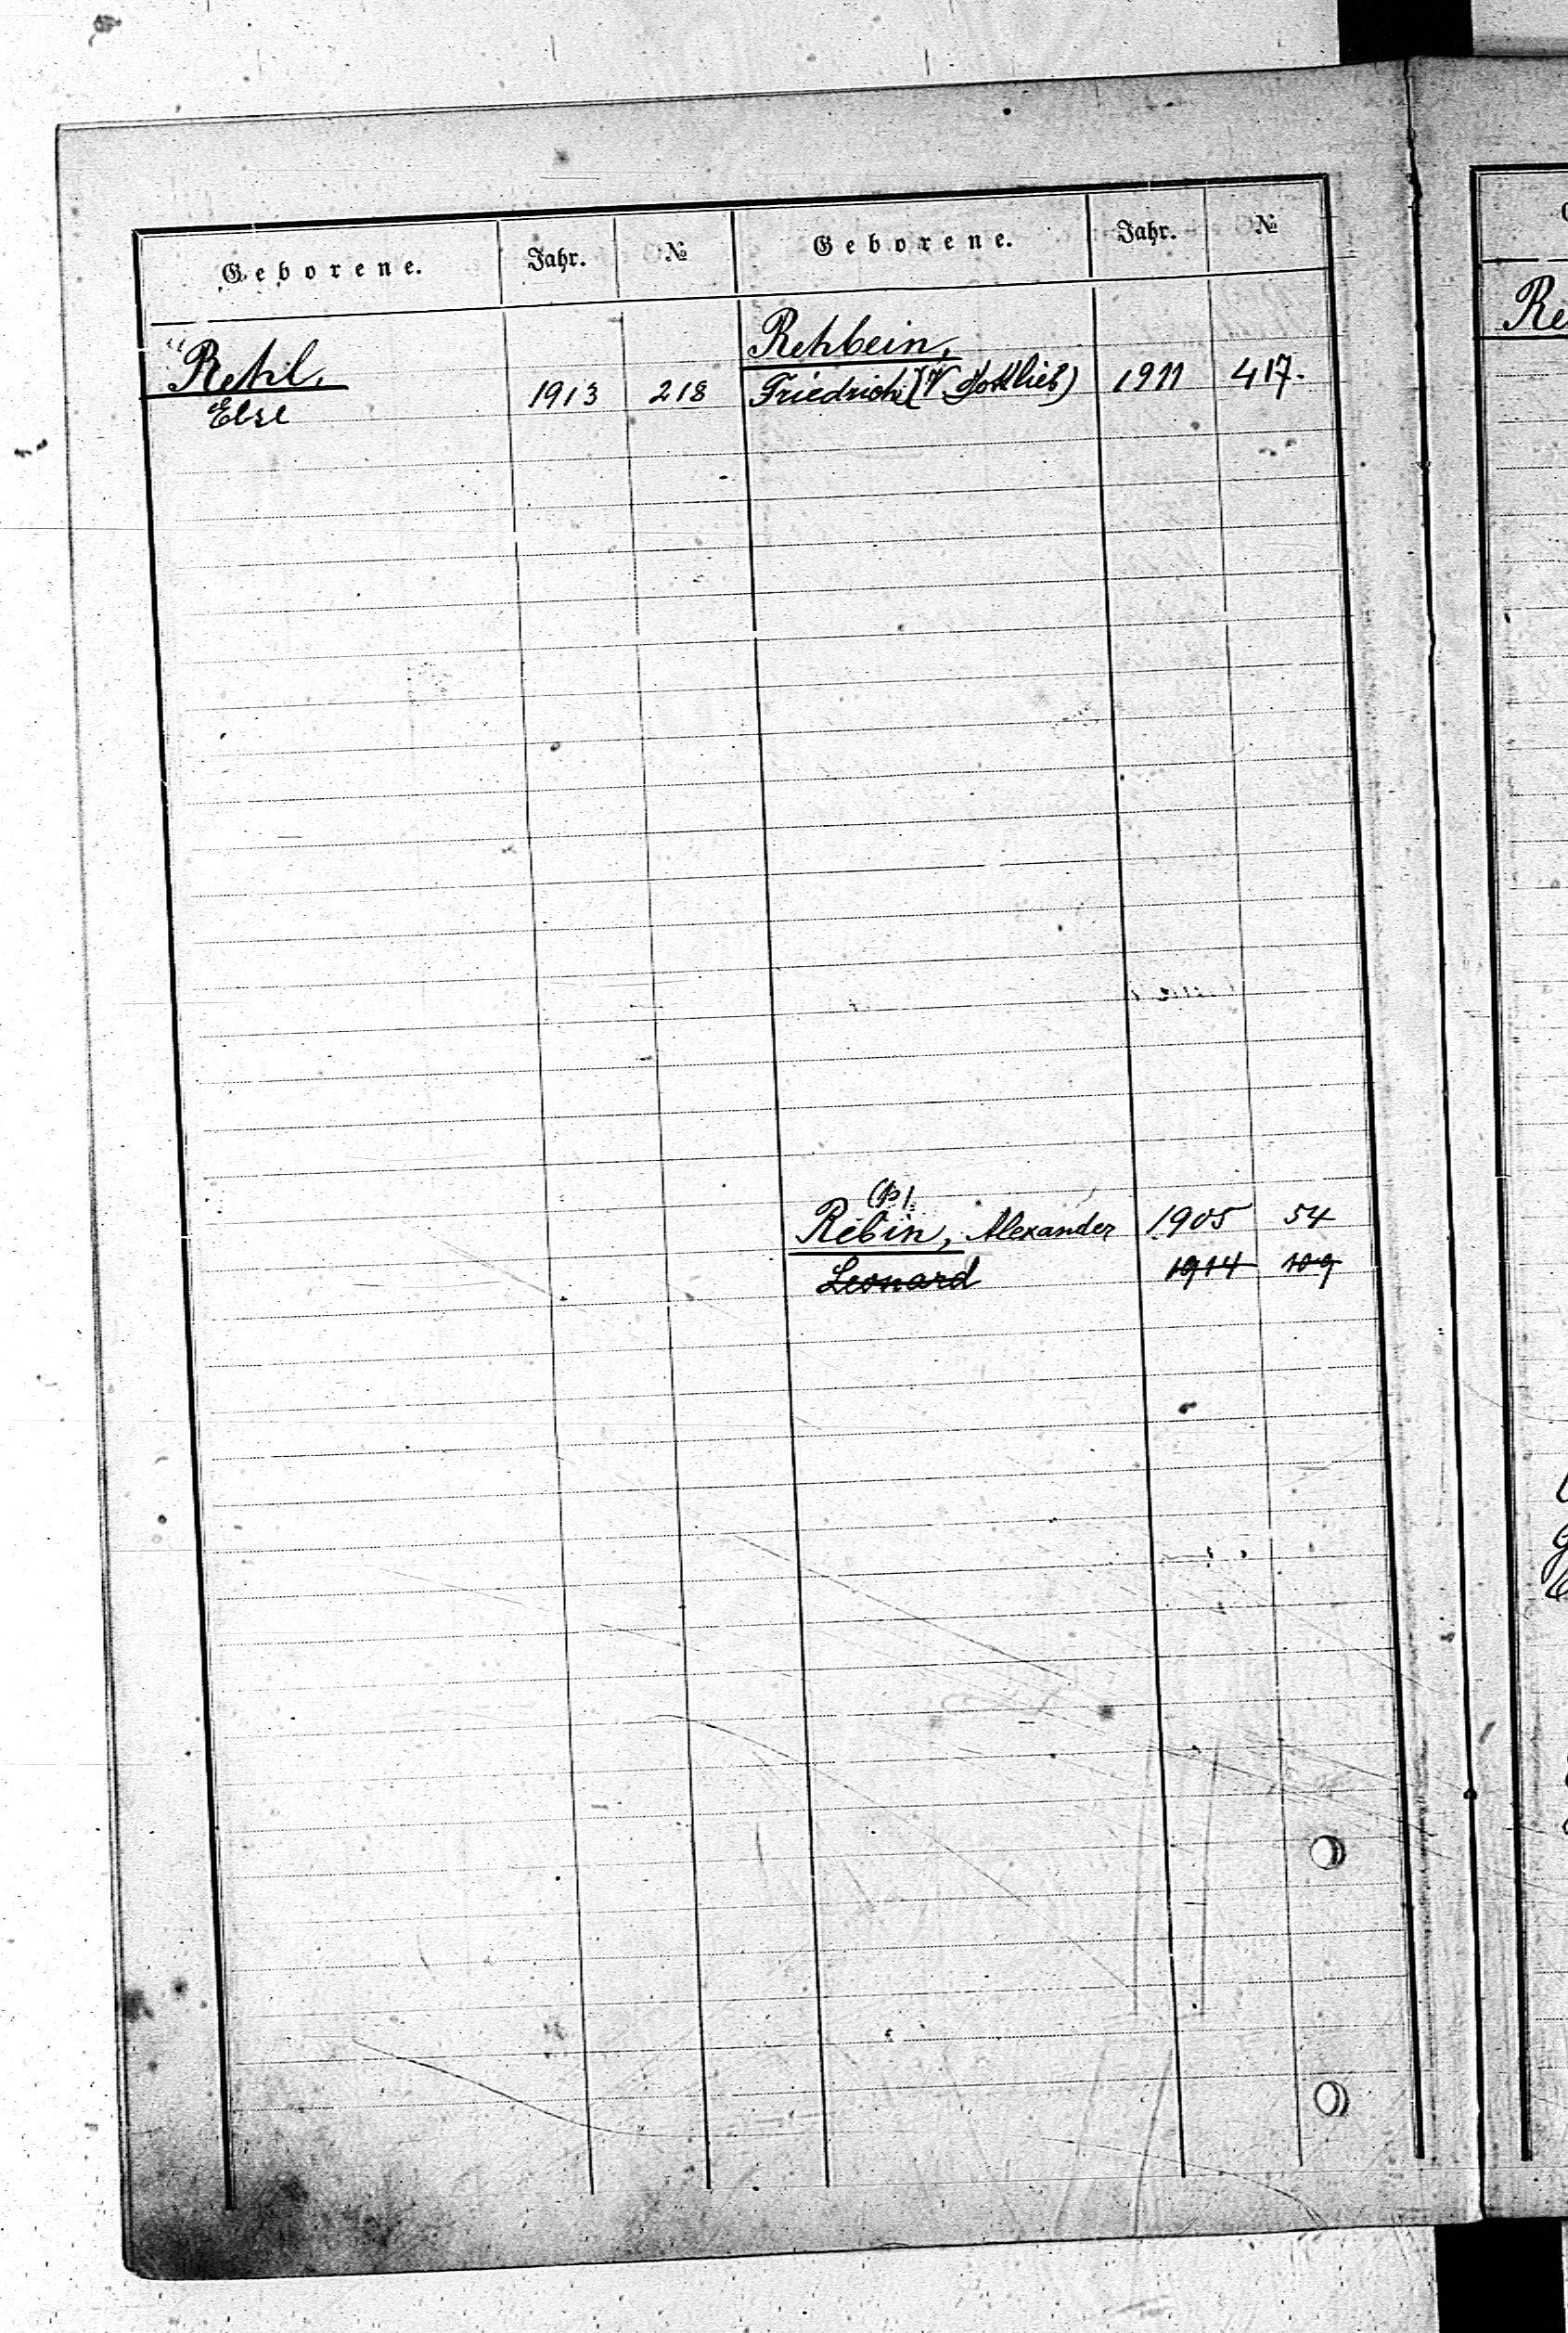 Geborene. Jahr. № Geborene. Jahr. №
Rehl,
Else 1913 218
Rehbein,
Friedrich (V Gottlieb) 1911 417.
(b)
Rebin, Alexander 1905 54
Leonard 1914 109
Re